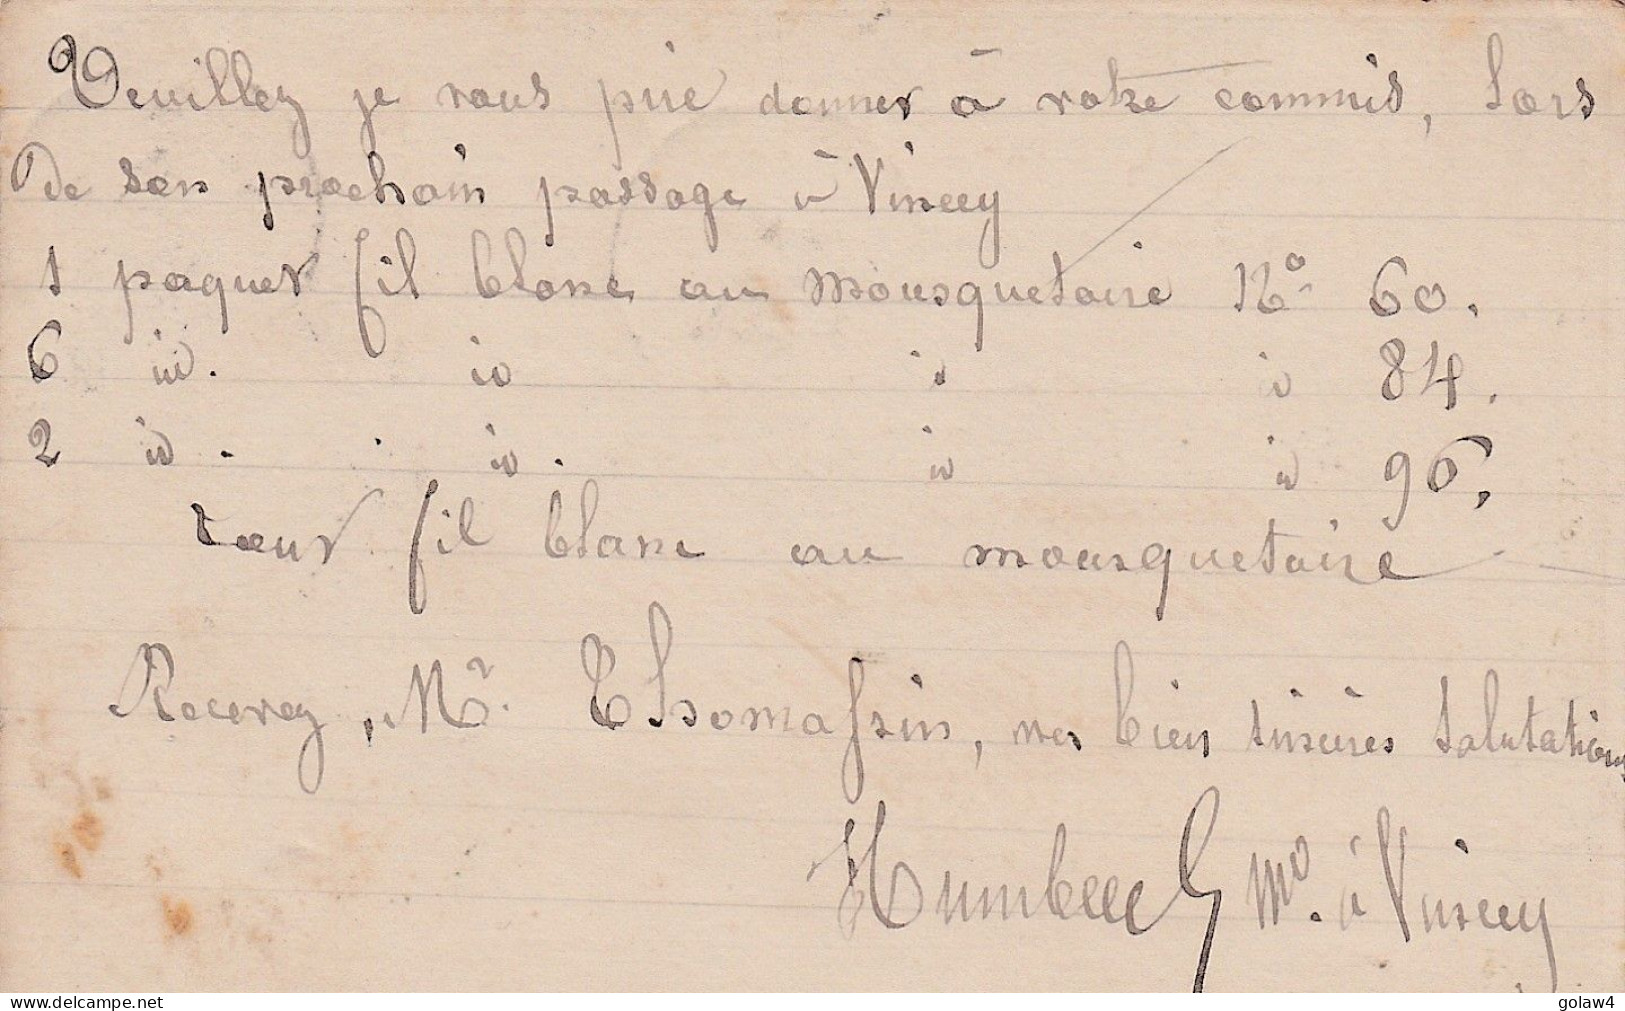 Veuillez je vous prie donner à votre commis, lors
de son prochain passage à Vincey
1 paquet fil blanc au mousquetaire No 60.
6 id. id id id 84.
2 id. id. id id 96.
tout fil blanc au mousquetaire
Recevez, Mr Thomassin, mes bien sincères salutations
Humbert Md. à Vincey
delcampe.net
golaw4